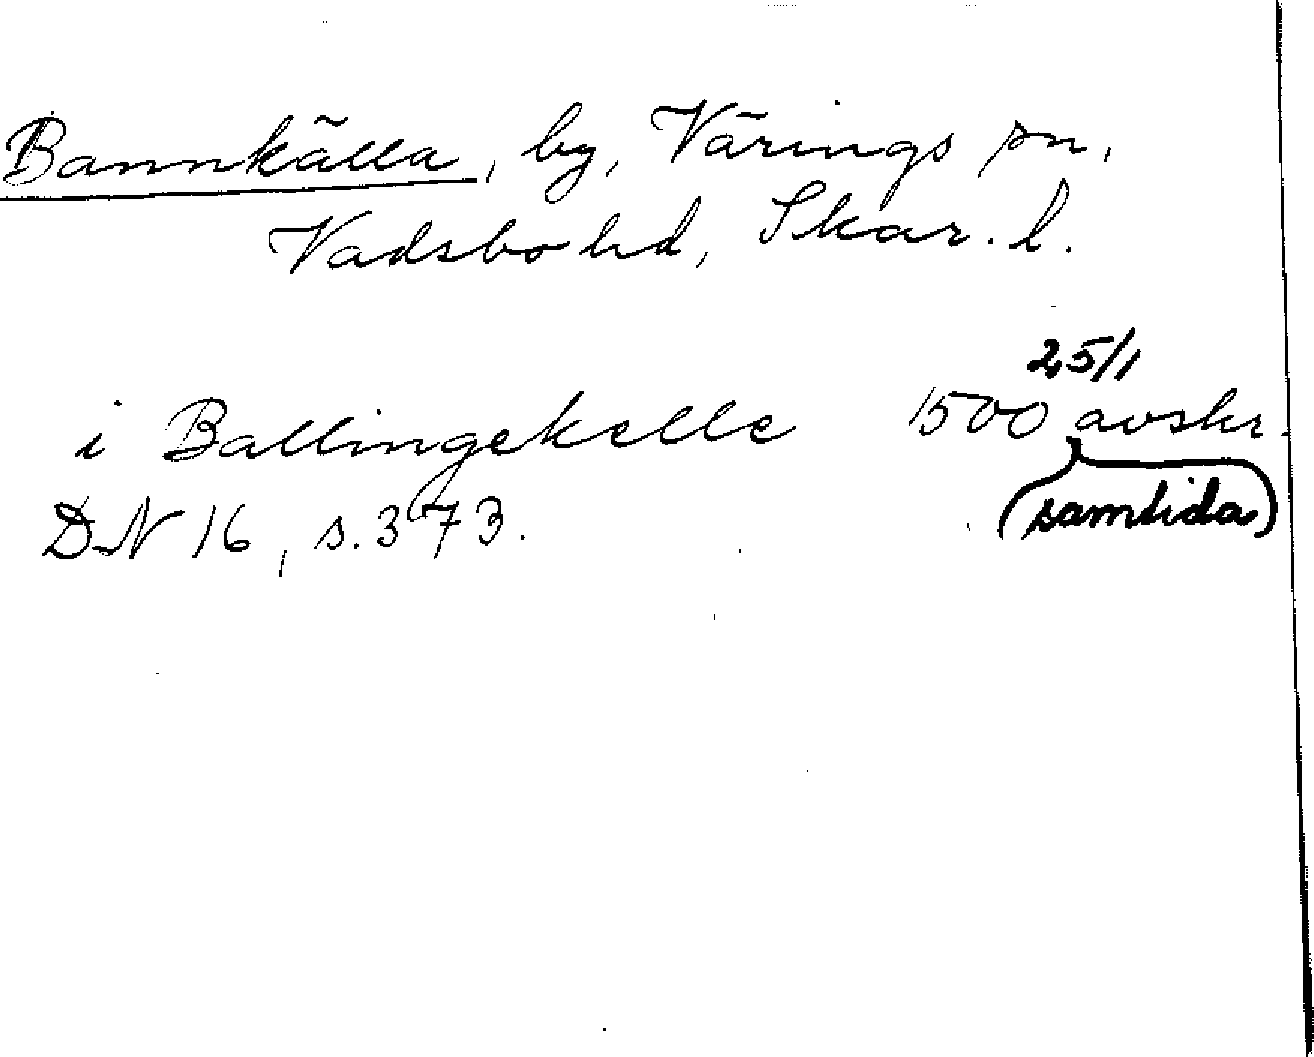 Bannkälla, by, Värings sn,
Vadsbo hd, Skar. l.
25/1
i Ballingekelle 1500 avskr.
(samtida)
DN 16, s. 373.